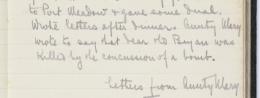 to Port Meadow & gave some drill.
Wrote letters after dinner. Aunty Mary
wrote to say that dear old Bryan was
killed by the concussion of a bomb.
Letters from Aunty Mary